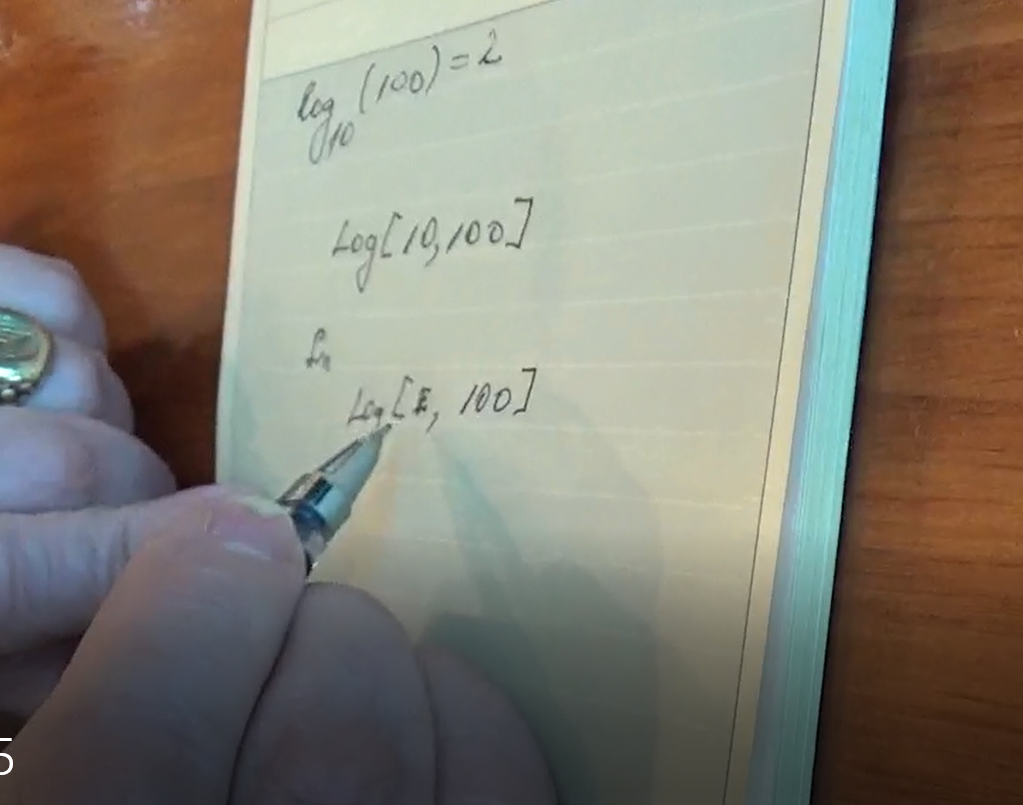 log₁₀(100)=2
Log[10,100]
Ln
Log[E, 100]
5